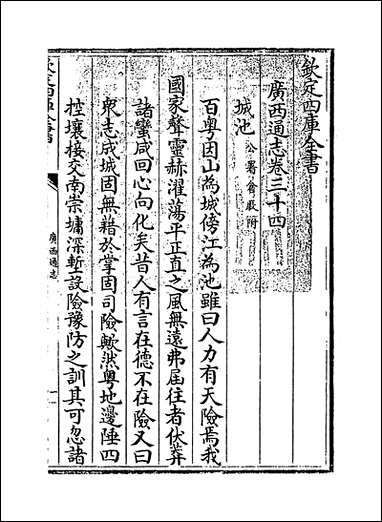 欽定四庫全書
廣西通志卷三十四
城池 公署倉廒附
百粤因山為城傍江為池雖曰人力有天險焉我
國家聲靈赫濯蕩平正直之風無遠弗屆往者伏莽
諸蠻咸回心向化矣昔人有言在德不在險又曰
衆志成城固無藉於掌固司險歟然粤地邊陲四
控壤接交南崇墉深塹設險豫防之訓其可忽諸
廣西通志